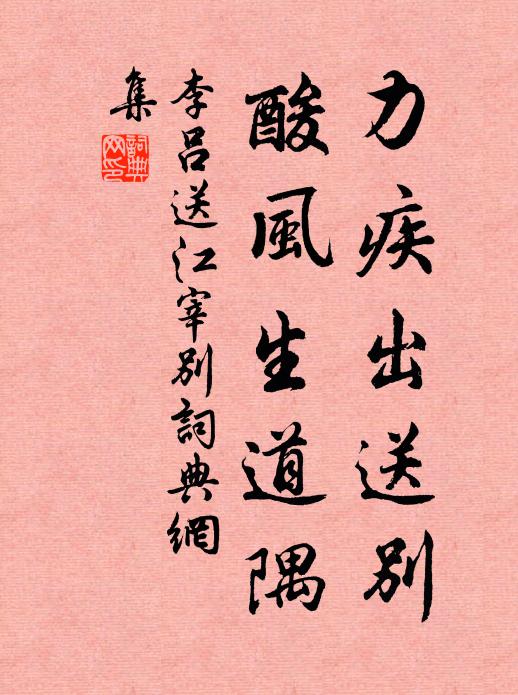 力疾出送别
酸風生道隅
李呂送江宰别詞典網
集
詞典
网印